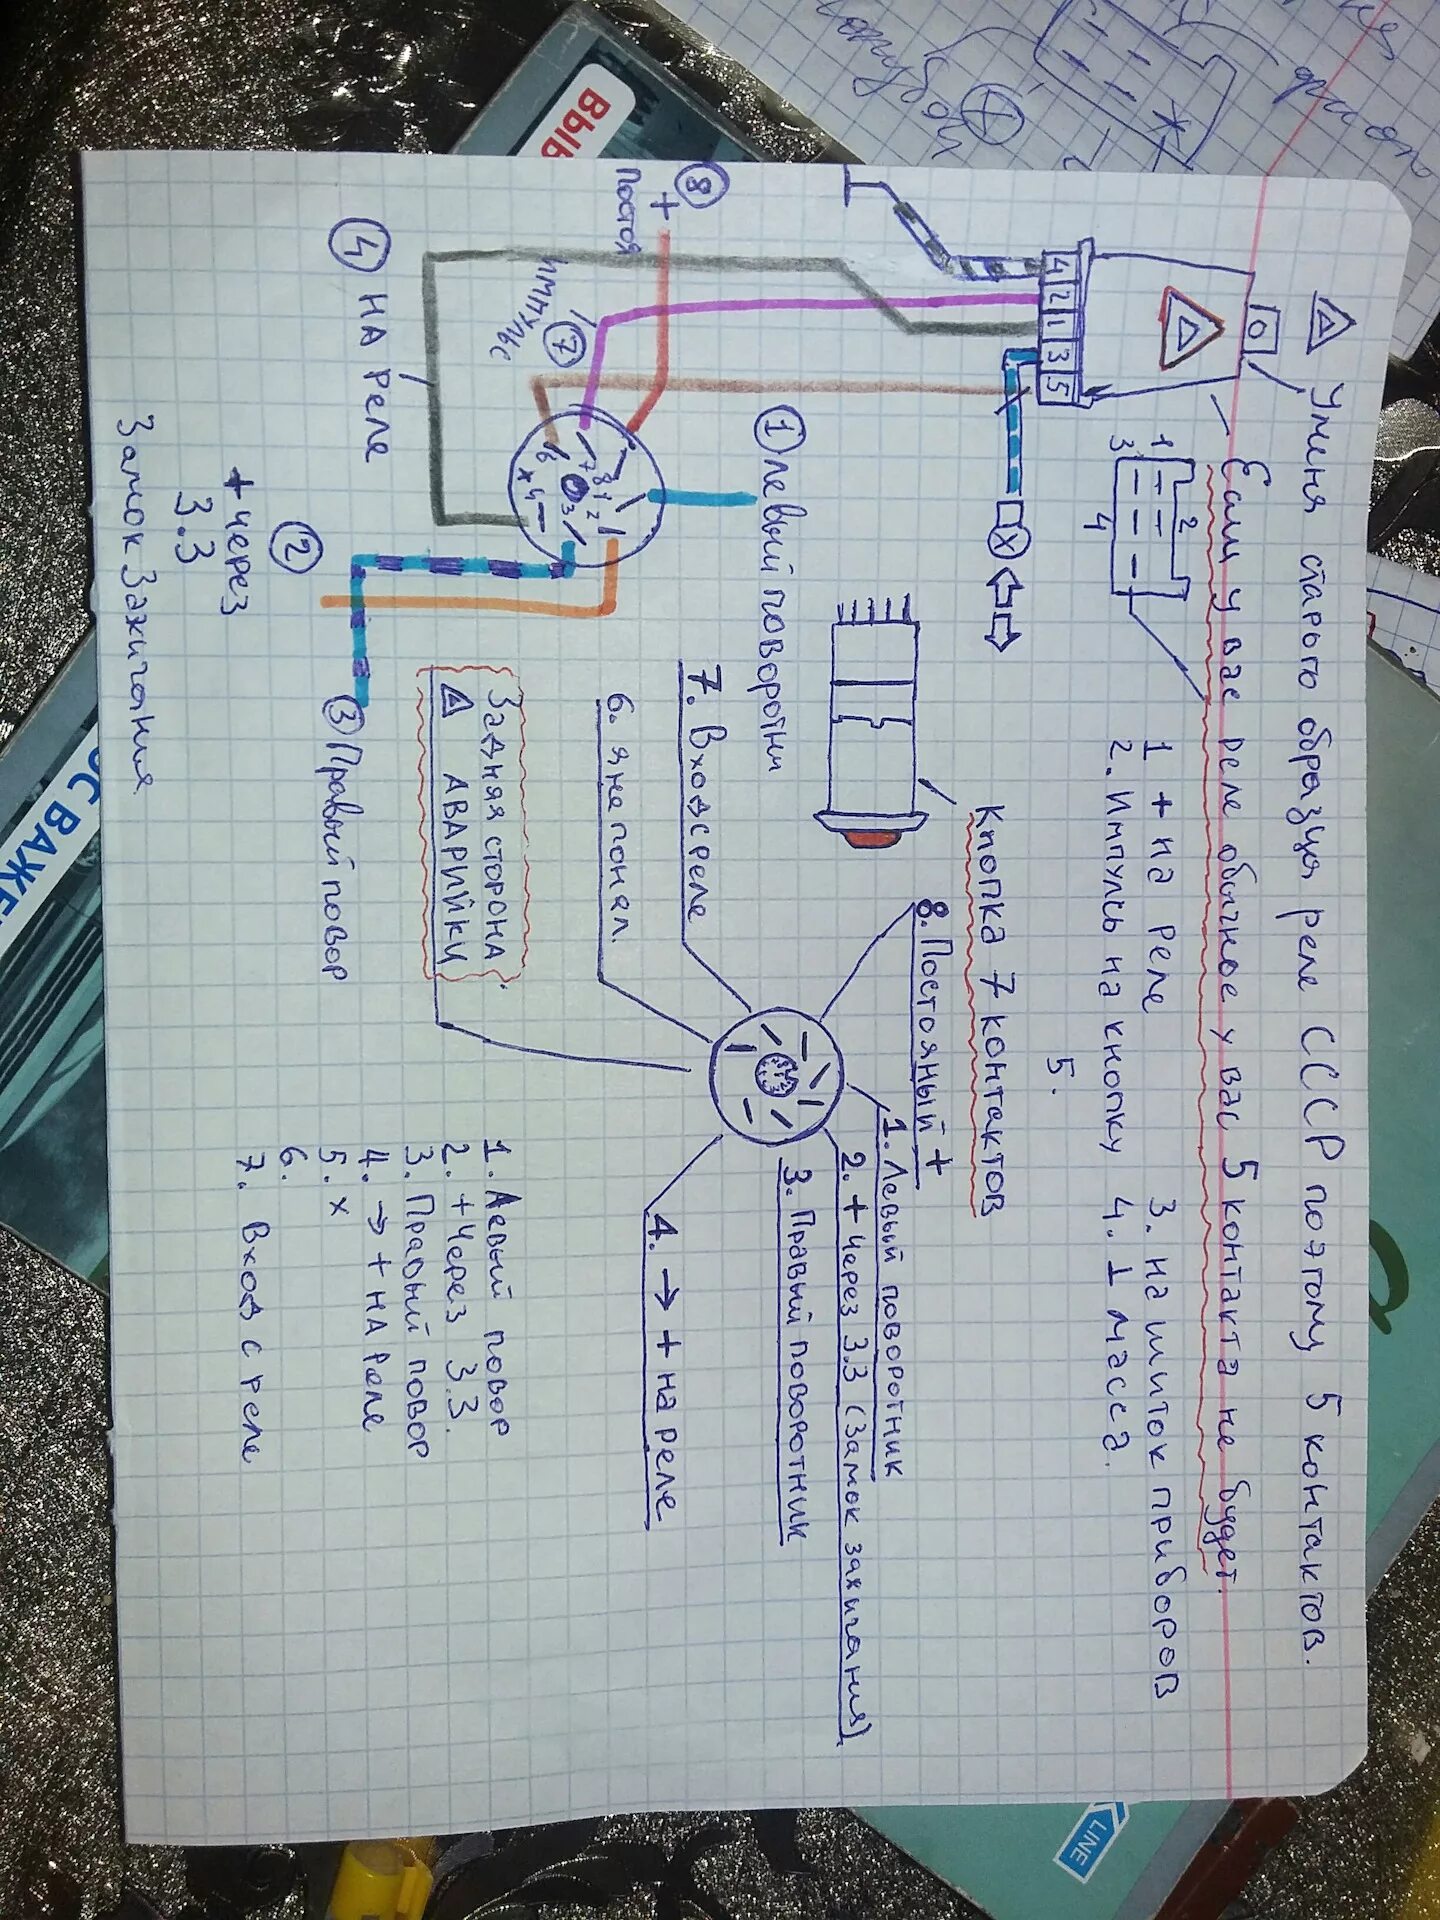 У меня старого образца реле СССР поэтому 5 контактов.
Если у вас реле обычное у вас 5 контакта не будет.
1 + на реле
2. Импульс на кнопку
3. на шиток приборов
4. ⊥ масса.
5.
1
2
3
4
4 2 1 3 5
Кнопка 7 контактов
8
+
Постоя
Импульс
7
1 Левый поворотни
4 на реле
6 7 8 1 2 3 x 4
2
+ через
3.3
Замок Зажигания
3 Правый повор
8. Постояный +
1. Левый поворотник
2. + Через 3.3 (Замок зажигания)
3. Правый поворотник
4. → + на реле
7. Вход с реле
6. я не понал.
Задняя сторона
АВАРИЙКИ
1. Левый повор
2. + Через 3.3.
3. Правый повор
4. → + на реле
5. x
6.
7. Вход с реле
ВЫ
ОС ВАЖЕ
LINE